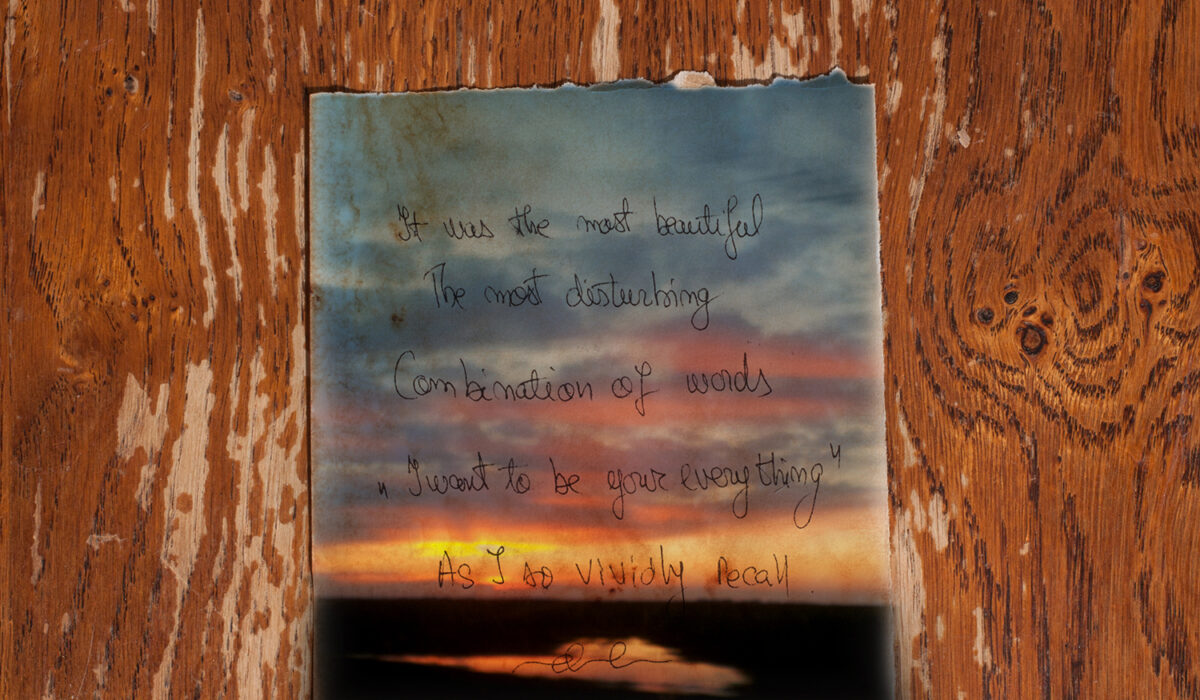 It was the most beautiful
The most disturbing
Combination of words
"I want to be your everything"
As I so vividly recall.